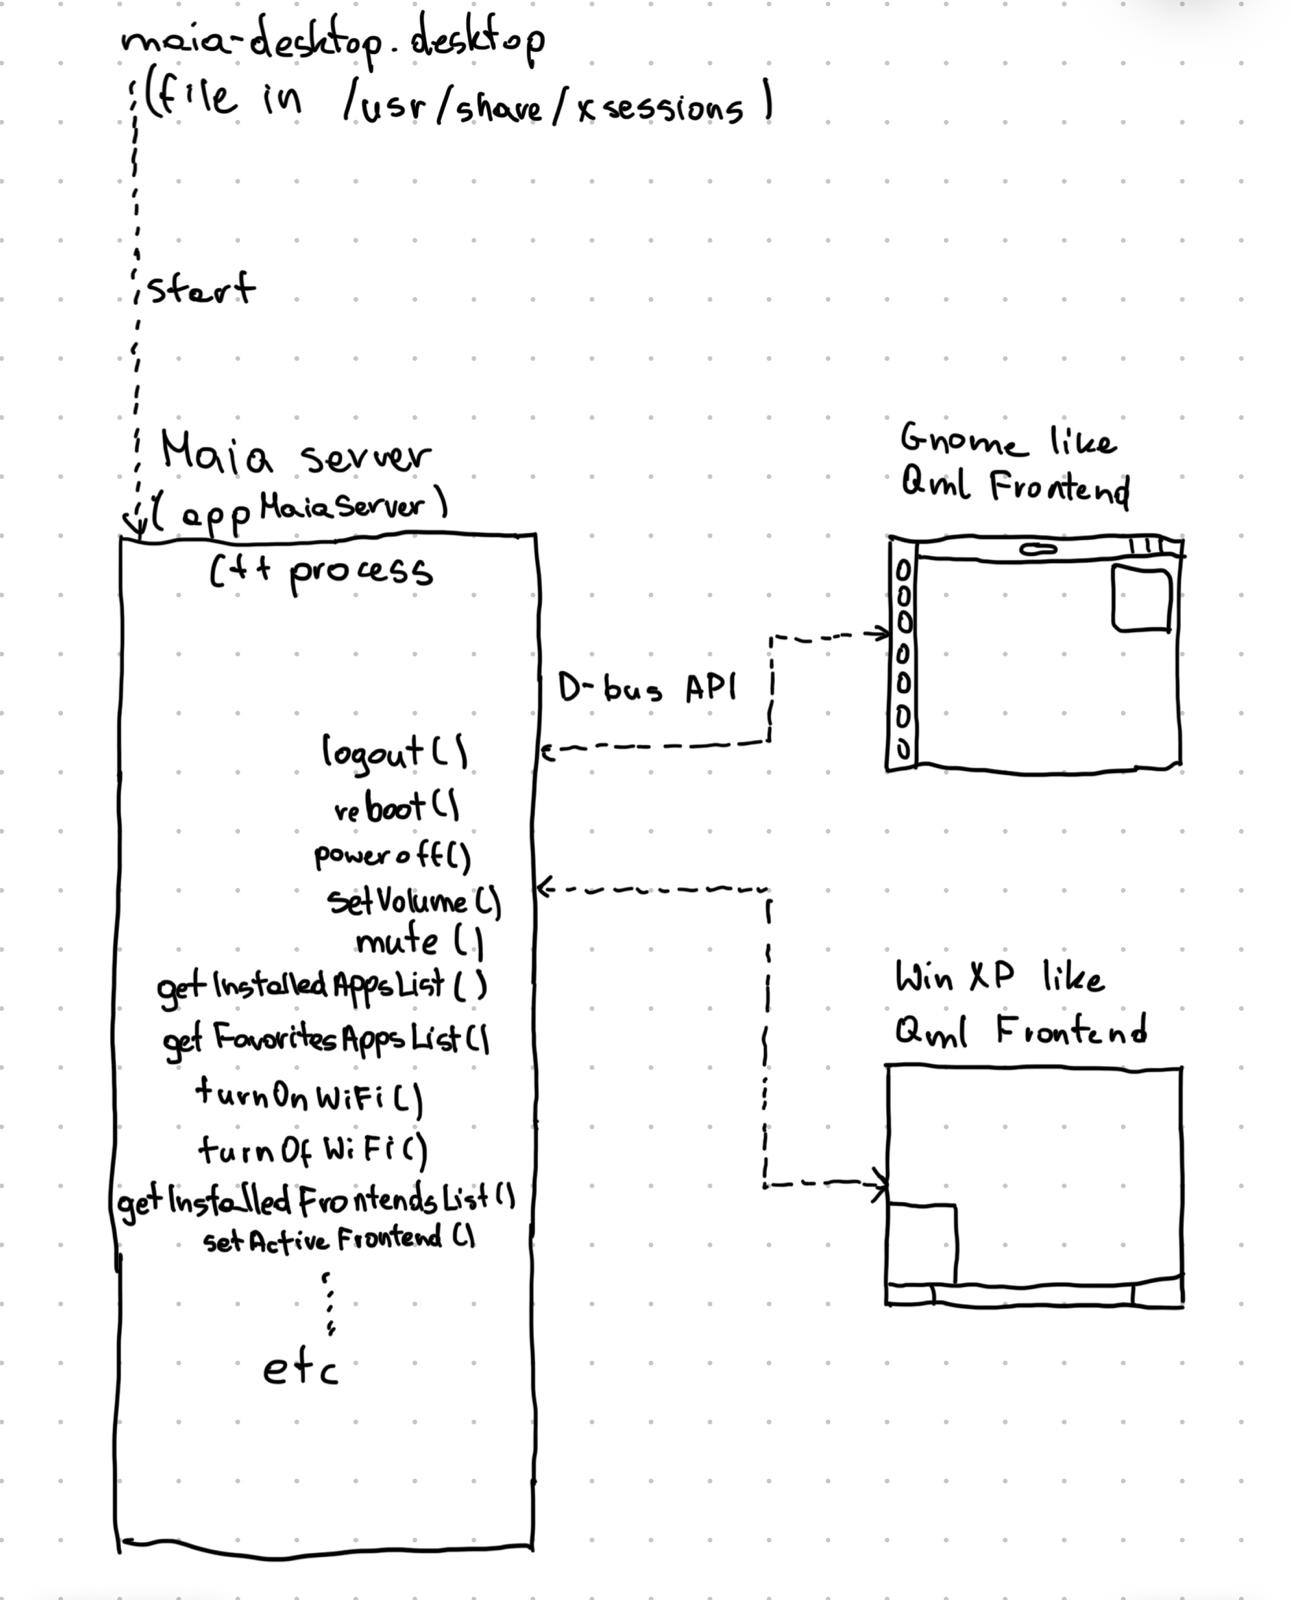 maia-desktop.desktop
(file in /usr/share/xsessions)
start
Maia server
(appMaiaServer)
C++ process
D-bus API
logout()
reboot()
poweroff()
setVolume()
mute()
getInstalledAppsList()
getFavoritesAppsList()
turnOnWiFi()
turnOfWiFi()
getInstalledFrontendsList()
setActiveFrontend()
etc
Gnome like
Qml Frontend
Win XP like
Qml Frontend